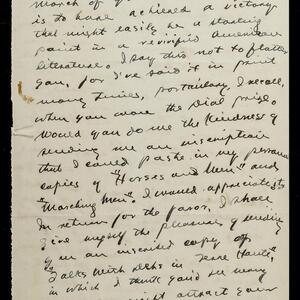 march of
is to have achieved a victory
that might easily be a starting
point in a revivified American
literature. I say this not to flatter
you, for I've said it in print
many times, particularly, I recall,
when you won the Dial prize.
Would you do me the kindness of
sending me an inscription
that I could paste in my personal
copies of "Horses and Men" and
"Marching Men". I would appreciate it.
In return for the favor, I shall
give myself the pleasure of sending
you an inscribed copy of
"Talks With Debs in Terre Haute,"
in which I think you'd see many
might attract your